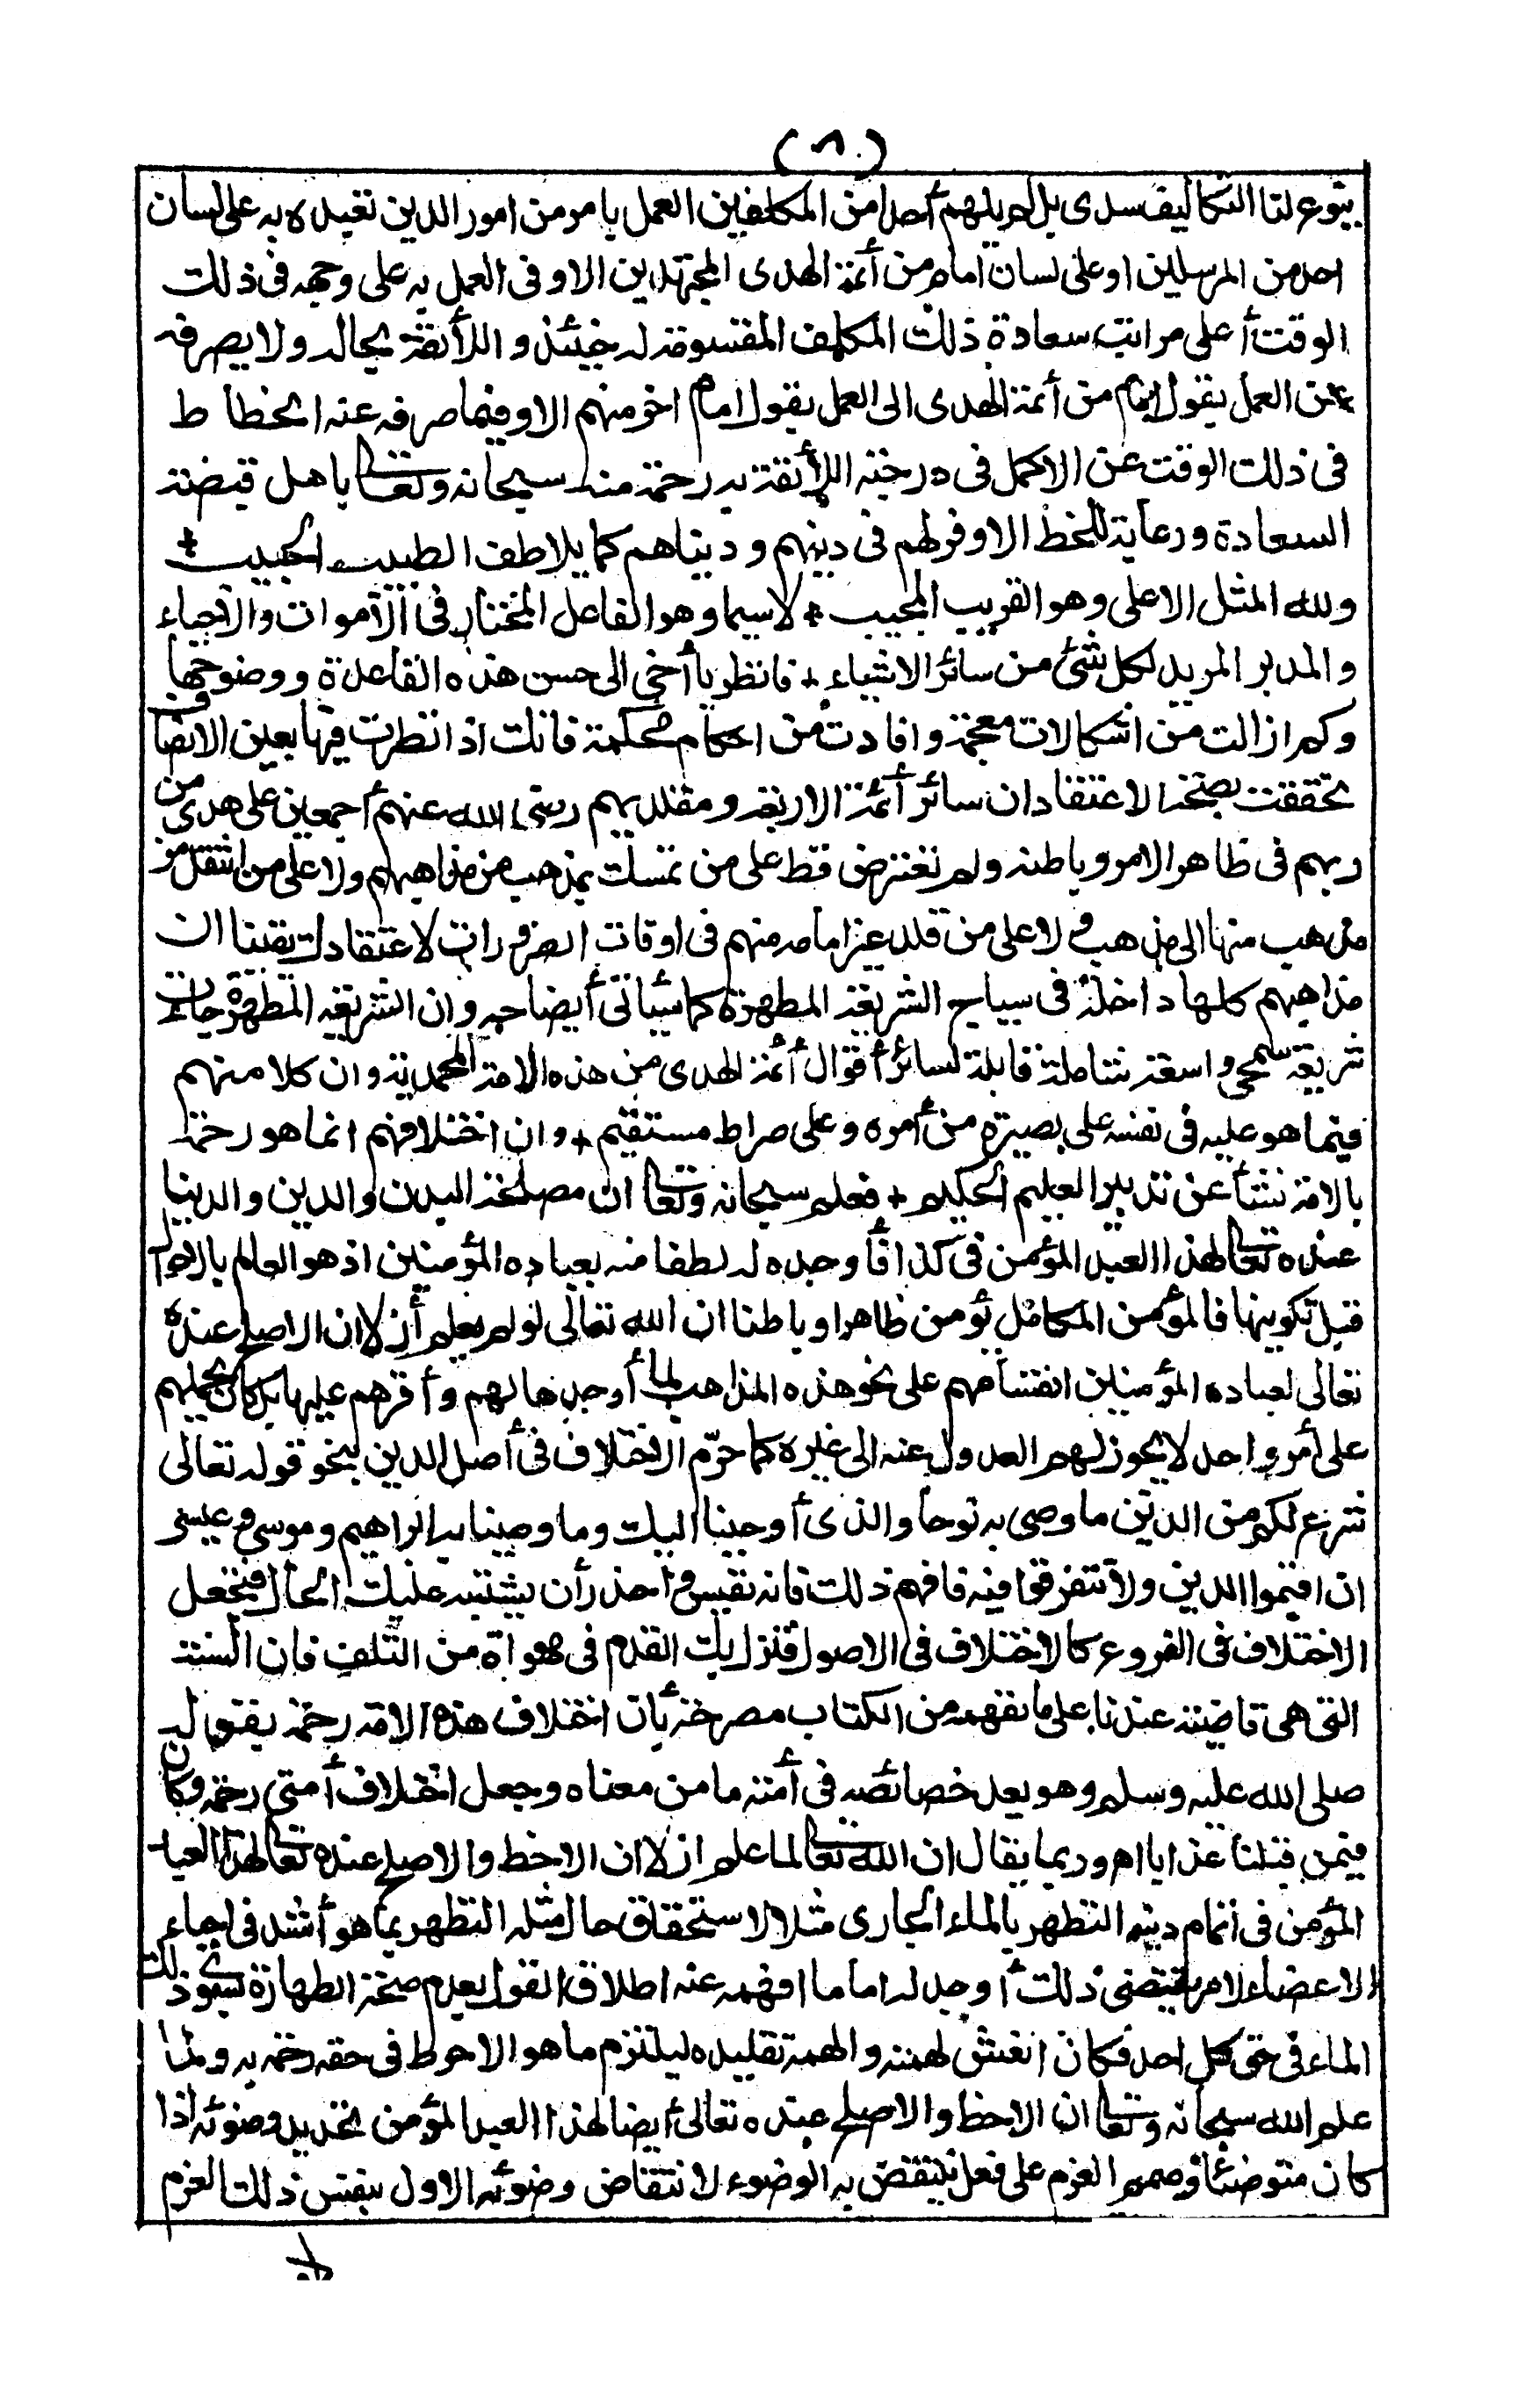 (٨)
يتوع لنا التكاليف سدى بل لم يلهم أحدا من المكلفين العمل بامر من امور الدين تعبده به على لسان
احد من المرسلين او على لسان امام من أئمة الهدى المجتهدين الا وفى العمل به على وجهه فى ذلك
الوقت أعلى مراتب سعادة ذلك المكلف المقسومة له حينئذ واللائقة بحاله ولا يصرفه
عن العمل بقول امام من أئمة الهدى الى العمل بقول امام اخر منهم الا وفيما صرفه عنه انحطاط
فى ذلك الوقت عن الاكمل فى درجته اللائقة به رحمة منه سبحانه وتعالى باهل قبضته
السعادة ورعاية للحظ الاوفر لهم فى دينهم ودنياهم كما يلاطف الطبيب الحبيب +
ولله المثل الاعلى وهو القريب المجيب + لاسيما وهو الفاعل المختار فى الاموات والاحياء
والمدبر المريد لكل شئ من سائر الاشياء + فانظر يا أخى الى حسن هذه القاعدة ووضوحها
وكم ازالت من اشكالات معجمة وافادت من احكام محكمة فانك اذا نظرت فيها بعين الانصاف
تحققت بصحة الاعتقاد ان سائر أئمة الاربعة ومقلديهم رضى الله عنهم أجمعين على هدى من
ربهم فى ظاهر الامر وباطنه ولم تعترض قط على من تمسك بمذهب من مذاهبهم ولا على من انتقل من
مذهب منها الى مذهب ولا على من قلد غير امامه منهم فى اوقات الضرورات لاعتقادك يقينا ان
مذاهبهم كلها داخلة فى سياج الشريعة المطهرة كما سيأتى أيضاحه وان الشريعة المطهرة جاءت
شريعة سمحى واسعة شاملة قابلة لسائر أقوال أئمة الهدى من هذه الامة المحمدية وان كلا منهم
فيما هو عليه فى نفسه على بصيرة من أمره وعلى صراط مستقيم + وان اختلافهم انما هو رحمة
بالامة نشأ عن تدبير العليم الحكيم + فعلم سبحانه وتعالى ان مصلحة البدن والدين والدنيا
عنده تعالى لهذا العبد المؤمن فى كذا فأوجده له لطفا منه بعباده المؤمنين اذ هو العالم بالاحوال
قبل تكوينها فالمؤمن الكامل يؤمن ظاهرا وباطنا ان الله تعالى لو لم يعلم أزلا ان الاصلح عنده
تعالى لعباده المؤمنين انقسامهم على نحو هذه المذاهب لما أوجدها لهم وأقرهم عليها بل كان يحملهم
على أمر واحد لا يجوز لهم العدول عنه الى غيره كما حرّم الاختلاف فى أصل الدين بنحو قوله تعالى
شرع لكم من الدين ما وصى به نوحا والذى أوحينا اليك وما وصينا به ابراهيم وموسى وعيسى
ان اقيموا الدين ولا تتفرقوا فيه فافهم ذلك فانه نفيس واحذر أن يشتبه عليك الحال فتجعل
الاختلاف فى الفروع كالاختلاف فى الاصول فتزل بك القدم فى مهواة من التلف فان السنة
التى هى قاضية عندنا على ما نفهمه من الكتاب مصرحة بأن اختلاف هذه الامة رحمة بقوله
صلى الله عليه وسلم وهو يعد خصائصه فى أمته ما من معناه وجعل اختلاف أمتى رحمة وكان
فيمن قبلنا عذابا اه وربما يقال ان الله تعالى لما علم ازلا ان الاحظ والاصلح عنده تعالى لهذا العبد
المؤمن فى اتمام دينه التطهر بالماء الجارى مثلا لاستحقاق حال مثله التطهر بما هو أشد فى احياء
الاعضاء لامر يقتضى ذلك أوجد له اماما افهمه عنه اطلاق القول بعدم صحة الطهارة بسوى ذلك
الماء فى حق كل احد فكان انعش لهمته والهمه تقليده ليلتزم ما هو الاحوط فى حقه رحمة به ولما
علم الله سبحانه وتعالى ان الاحظ والاصلح عنده تعالى أيضا لهذا العبد المؤمن تجديد وضوئه اذا
كان متوضئا وصمم العزم على فعل ينتقض به الوضوء لانتقاض وضوئه الاول بنفس ذلك العزم